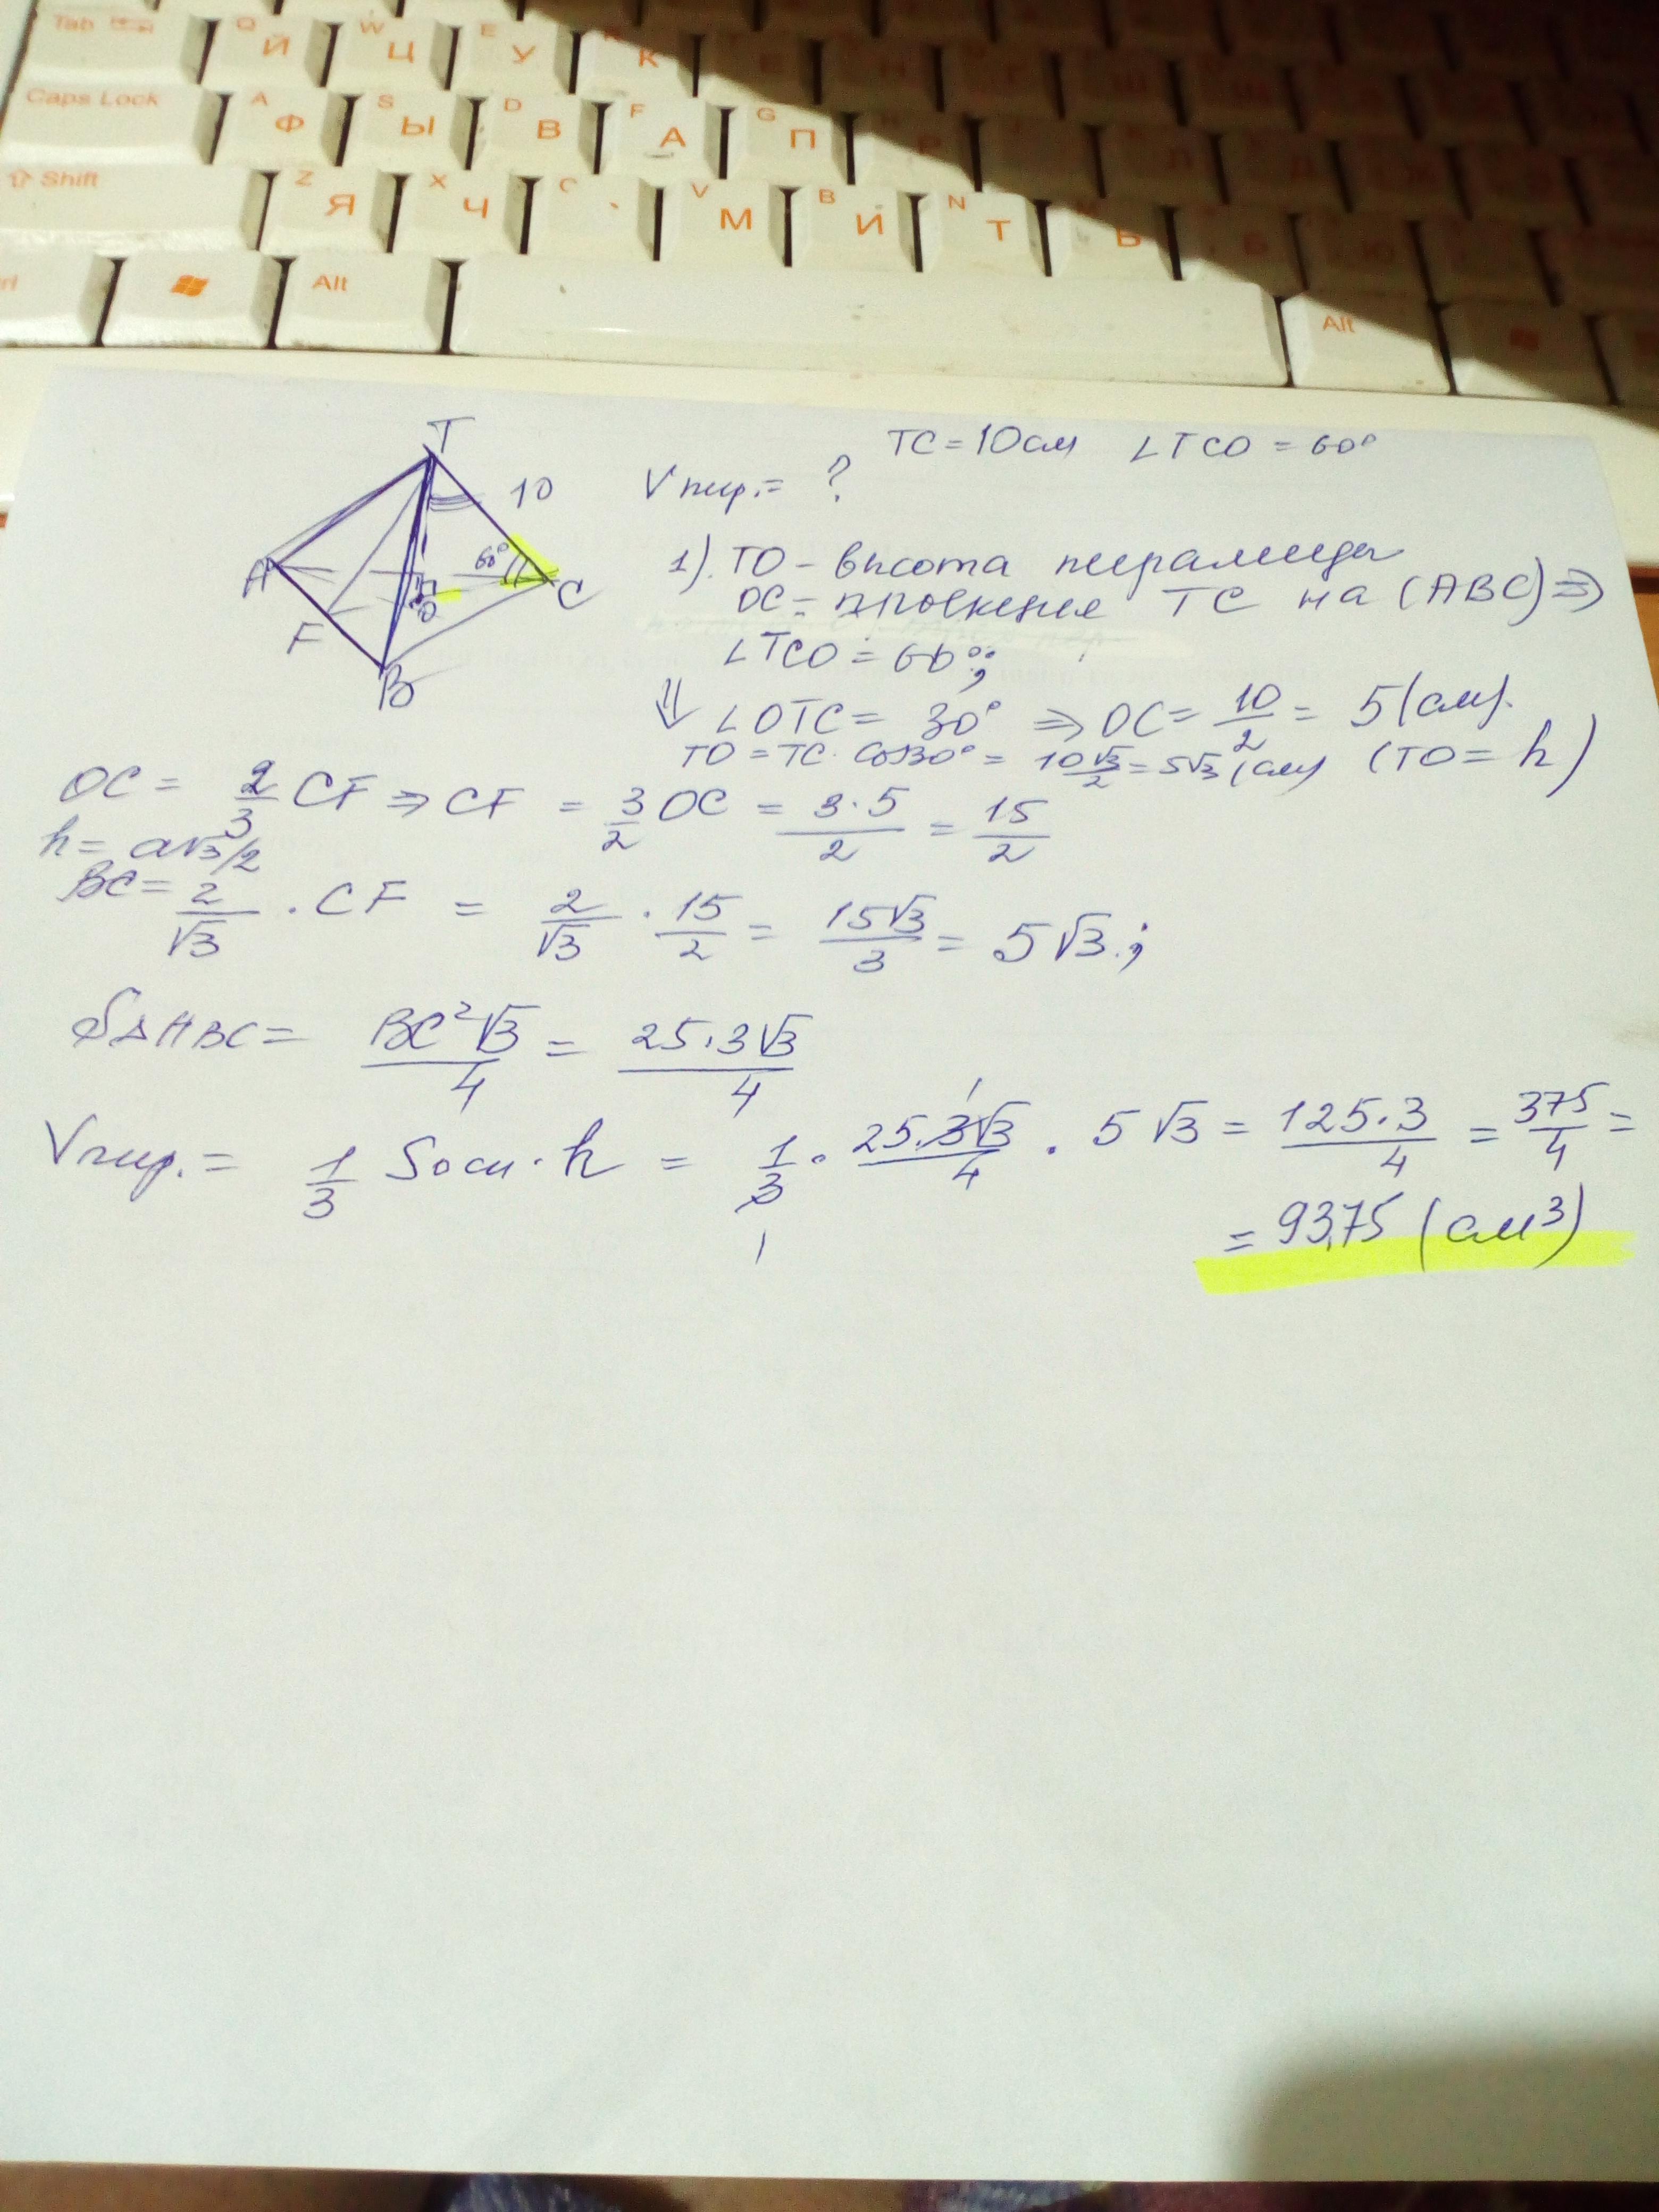 Tab Q Й W Ц E У К
Caps Lock A Ф S Ы D В F А G П
Shift Z Я X Ч C V М B И N Т Ь
Alt Alt
T
10
60°
A
C
O
F
B
TC = 10 см ∠TCO = 60°
Vпир. = ?
1). TO - высота пирамиды
OC - проекция TC на (ABC) ⇒
∠TCO = 60°;
⇓ ∠OTC = 30° ⇒ OC = 10/2 = 5 (см).
TO = TC · cos30° = 10√3/2 = 5√3 (см) (TO = h)
OC = 2/3 CF ⇒ CF = 3/2 OC = 3·5/2 = 15/2
h = a√3/2
BC = 2/√3 · CF = 2/√3 · 15/2 = 15√3/3 = 5√3;
S△ABC = BC²√3/4 = 25·3√3/4
Vпир. = 1/3 Sосн · h = 1/3 · 25·3√3/4 · 5√3 = 125·3/4 = 375/4 =
= 93,75 (см³)